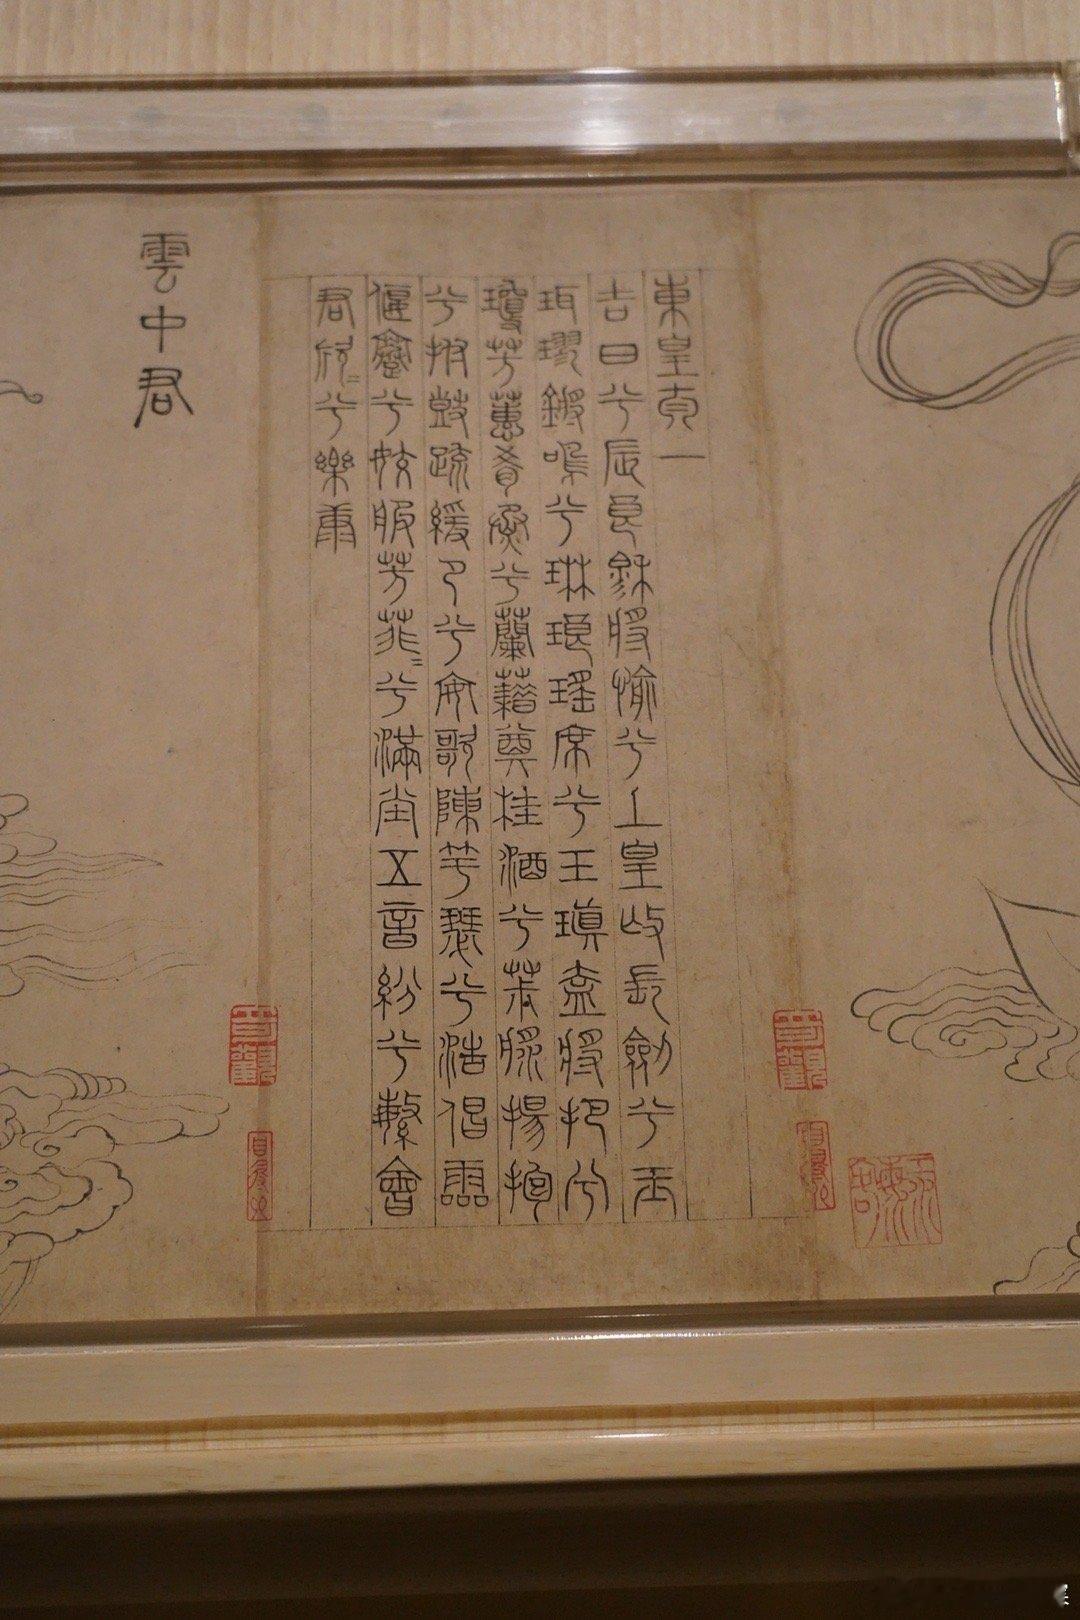 東皇太一
吉日兮辰良穆將愉兮上皇撫長劍兮玉
珥璆鏘鳴兮琳琅瑤席兮玉瑱盍將把兮
瓊芳蕙肴烝兮蘭藉奠桂酒兮椒漿揚枹
兮拊鼓疏緩節兮安歌陳竽瑟兮浩倡靈
偃蹇兮姣服芳菲=兮滿堂五音紛兮繁會
君欣=兮樂康
雲中君